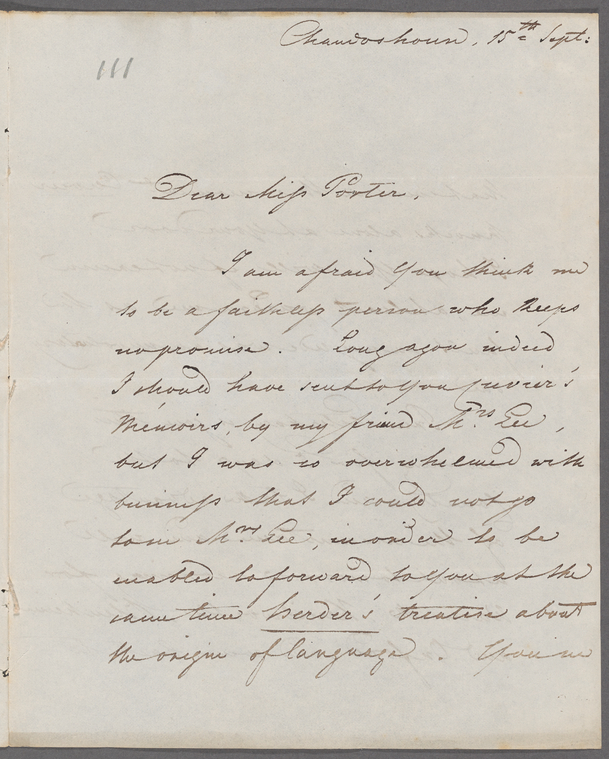 Chandoshouse, 15th Sept:
111
Dear Miss Porter,
I am afraid you think me
to be a faithless person who keeps
no promise. Long agon indeed
I should have sent to you Cuvier's
Memoirs, by my friend Mrs Lee,
but I was so overwhelmed with
business that I could not go
to see Mrs Lee, in order to be
enabled to forward to you at the
same time Herder's treatise about
the origin of language. You